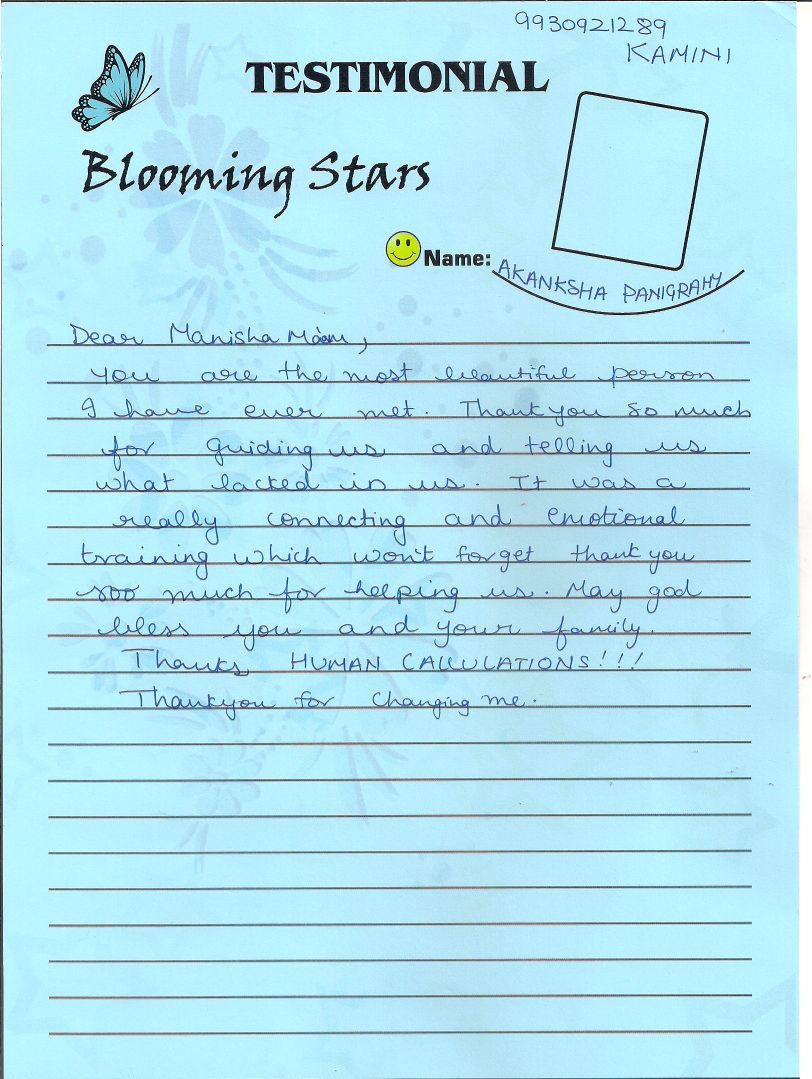 9930921289
KAMINI
TESTIMONIAL
Blooming Stars
Name: AKANKSHA PANIGRAHY
Dear Manisha Ma'am,
you are the most beautiful person
I have ever met. Thankyou so much
for guiding us and telling us
what lacked in us. It was a
really connecting and emotional
training which won't forget thank you
soo much for helping us. May god
bless you and your family.
Thanks HUMAN CALCULATIONS!!!
Thankyou for changing me.